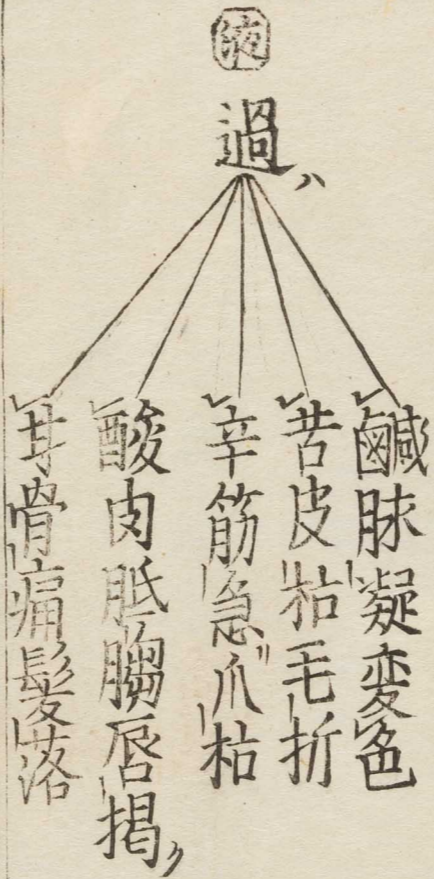 液
過ハ
鹹脉凝変色
苦皮枯毛折
辛筋急爪枯
酸肉胝䐢唇掲
甘骨痛髮落